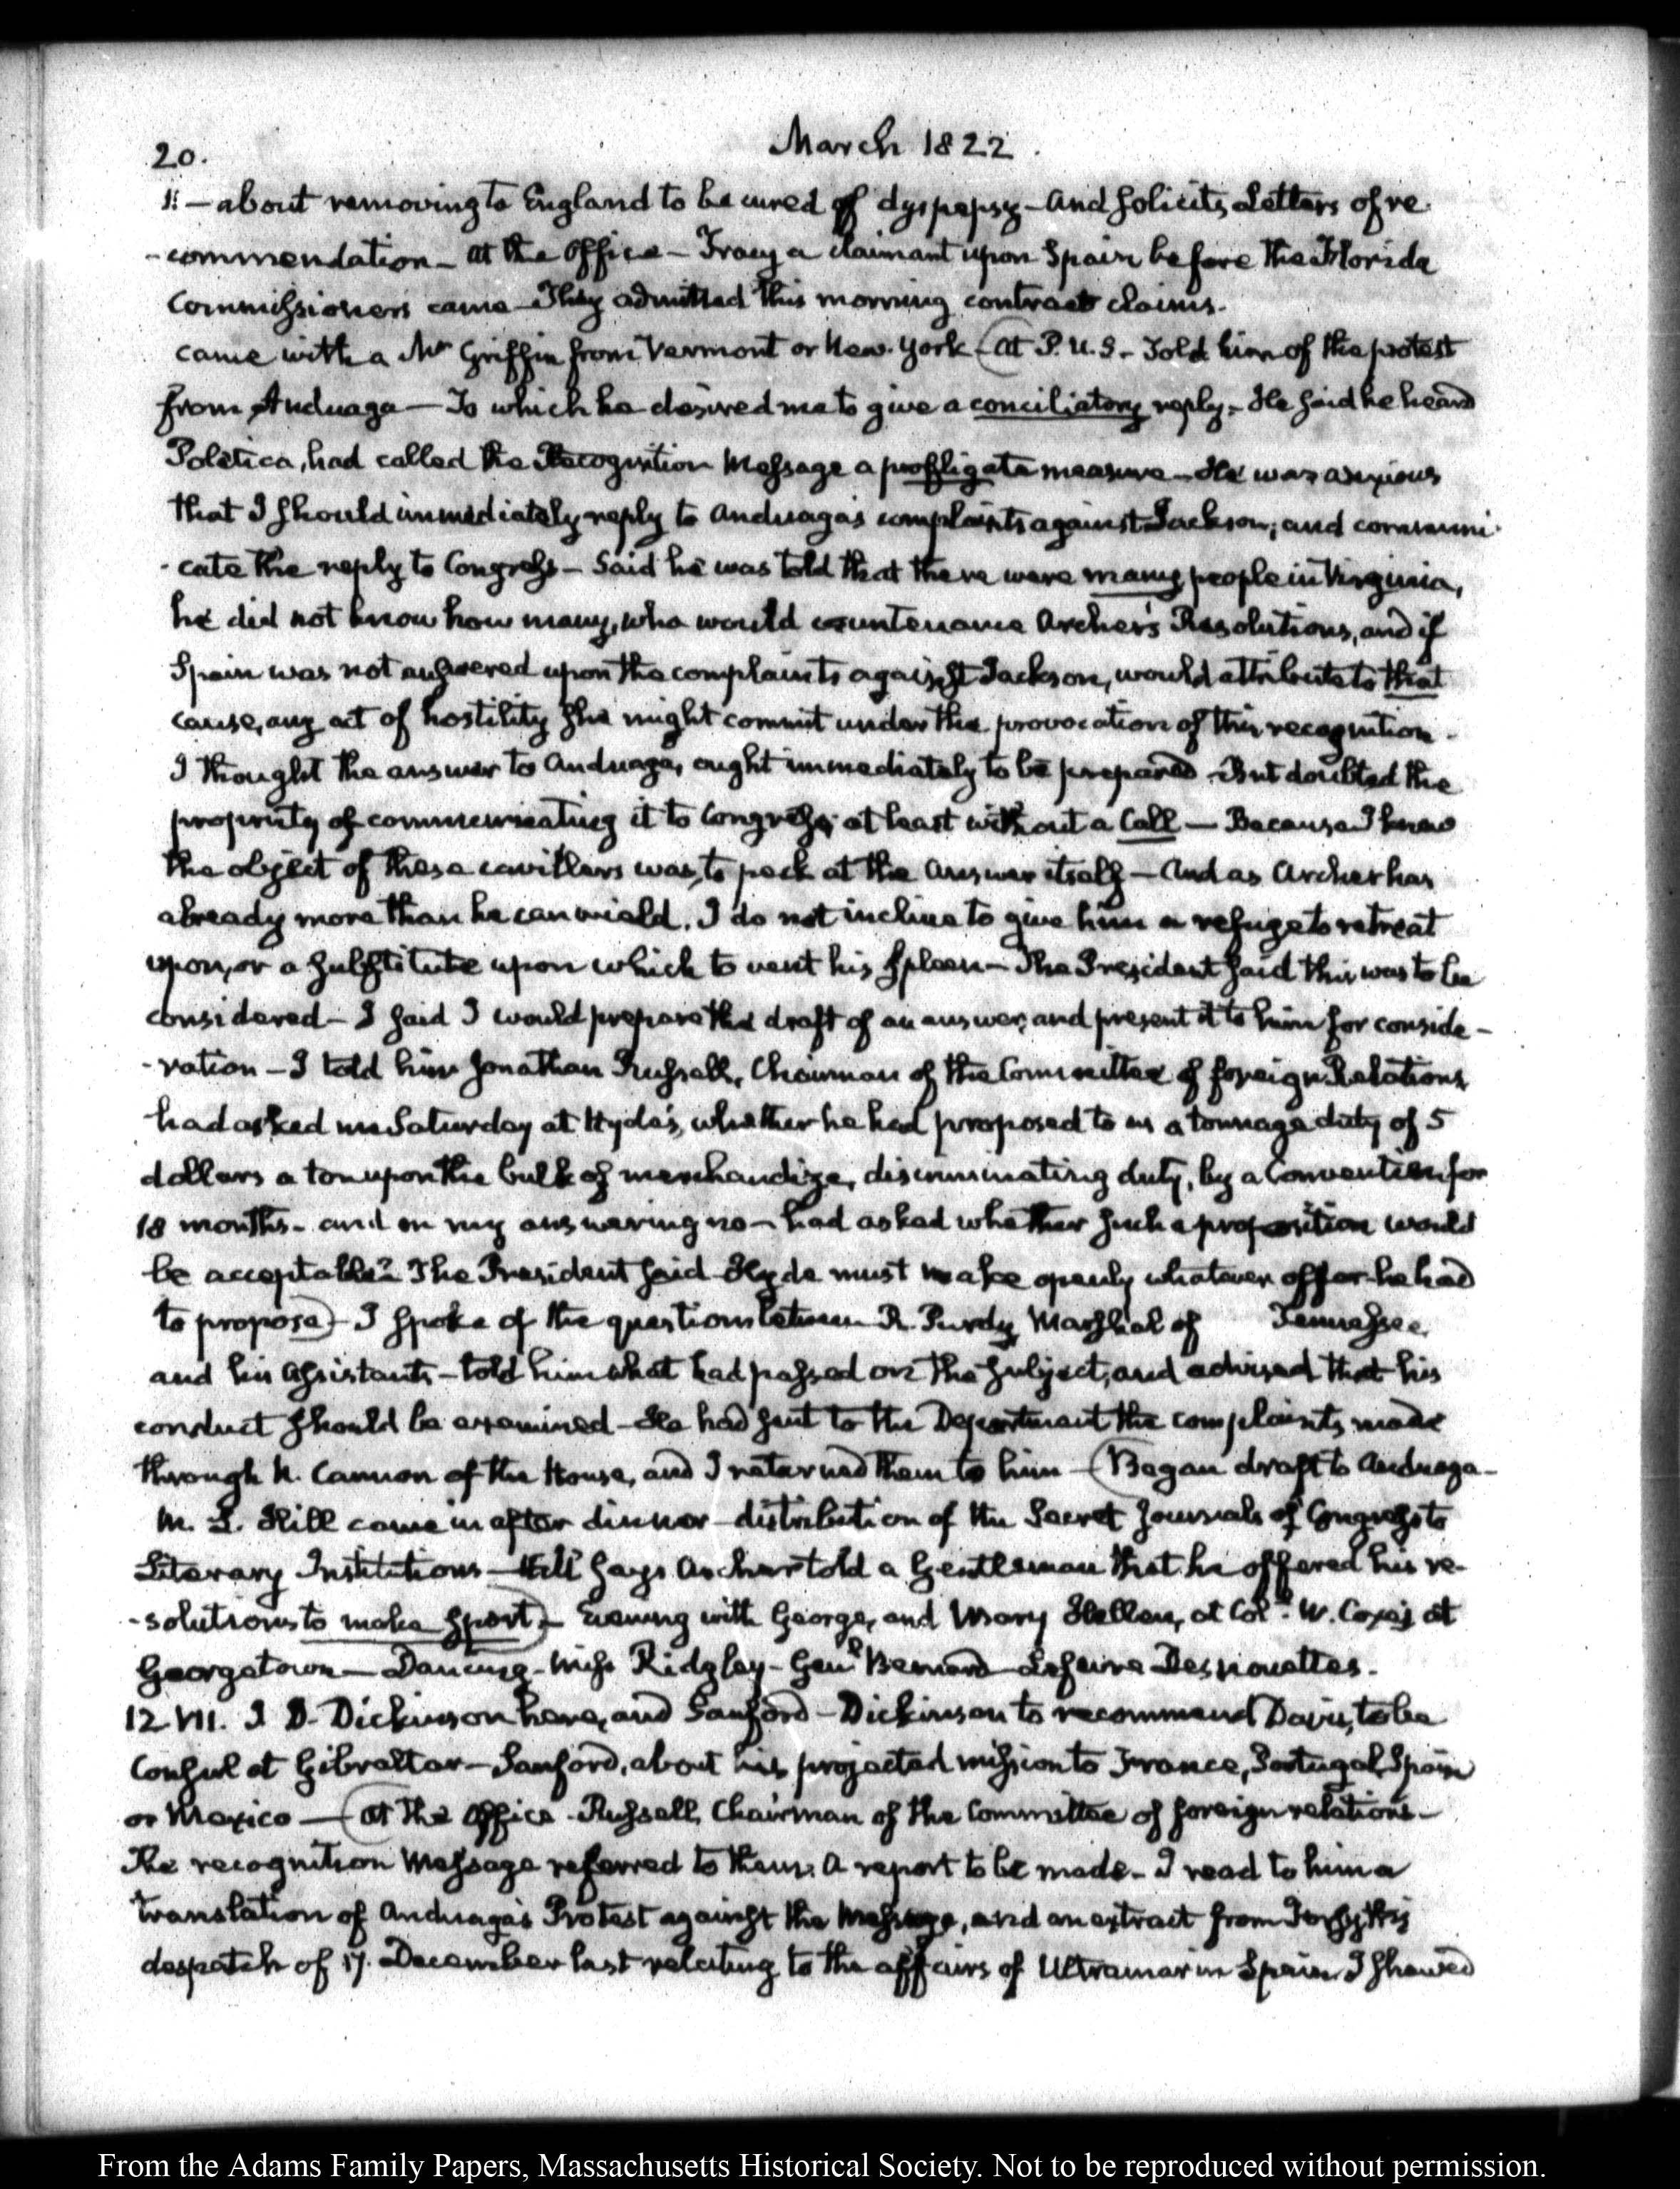 20.
March 1822.
11. — about removing to England to be cured of dyspepsy — And solicits Letters of re-
-commendation — At the Office — Tracy a claimant upon Spain before the Florida
Commissioners came — They admitted this morning contract claims.
came with a Mr Griffin from Vermont or New-York — (At P.U.S. — Told him of the protest
from Anduaga — To which he desired me to give a conciliatory reply. — He said he heard
Poletica, had called the Recognition Message a profligate measure — He was anxious
that I should immediately reply to Anduaga's complaints against Jackson, and communi-
-cate the reply to Congress — Said he was told that there were many people in Virginia,
he did not know how many, who would countenance Archer's Resolutions, and if
Spain was not answered upon the complaints against Jackson, would attribute to that
cause, any act of hostility she might commit under the provocation of this recognition —
I thought the answer to Anduaga, ought immediately to be prepared. But doubted the
propriety of communicating it to Congress; at least without a Call — Because I knew
the object of these cavillers was, to peck at the Answer itself — And as Archer has
already more than he can wield, I do not incline to give him a refuge to retreat
upon, or a substitute upon which to vent his spleen — The President said this was to be
considered — I said I would prepare the draft of an answer, and present it to him for conside-
-ration — I told him Jonathan Russell, Chairman of the Committee of foreign Relations,
had asked me Saturday at Hyde's, whether he had proposed to us a tonnage duty of 5
dollars a ton upon the bulk of merchandize, discriminating duty, by a Convention for
18 months — and on my answering no — had asked whether such a proposition would
be acceptable? The President said Hyde must make openly whatever offer he had
to propose) — I spoke of the questions between R. Purdy Marshal of Tennessee,
and his Assistants — told him what had passed on the subject, and advised that his
conduct should be examined — He had sent to the Department the complaints, made
through N. Cannon of the House, and I returned them to him — (Began draft to Anduaga —
M. L. Hill came in after dinner — distribution of the Secret Journals of Congress to
Literary Institutions — Hill says Archer told a Gentleman that he offered his re-
-solutions to make sport) — Evening with George, and Mary Hellen, at Coll. W. Coxe's at
Georgetown — Dancing — Miss Ridgley — Genl Bernard — Lefevre Desnouettes.
12. VII. J D. Dickinson here, and Sanford — Dickinson to recommend Davis, to be
Consul at Gibraltar — Sanford, about his projected mission to France, Portugal, Spain
or Mexico — (At the Office — Russell, Chairman of the Committee of foreign relations —
The recognition Message referred to them. A report to be made — I read to him a
translation of Anduaga's Protest against the Message, and an extract from Forsyth's
despatch of 17. December last relating to the affairs of Ultramar in Spain. I showed
From the Adams Family Papers, Massachusetts Historical Society. Not to be reproduced without permission.